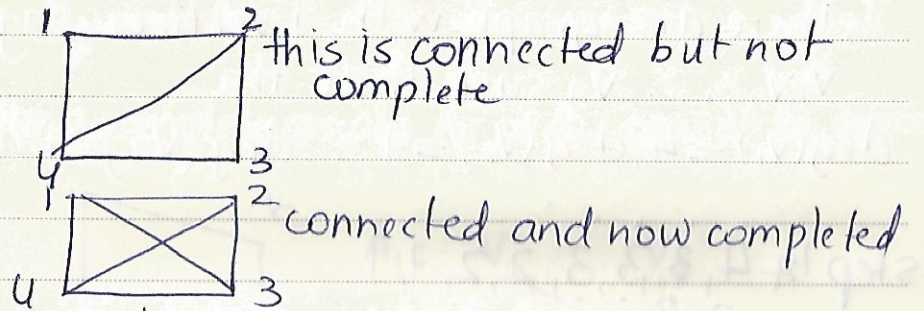 1 2 this is connected but not
complete
4 3
1 2 connected and now completed
4 3